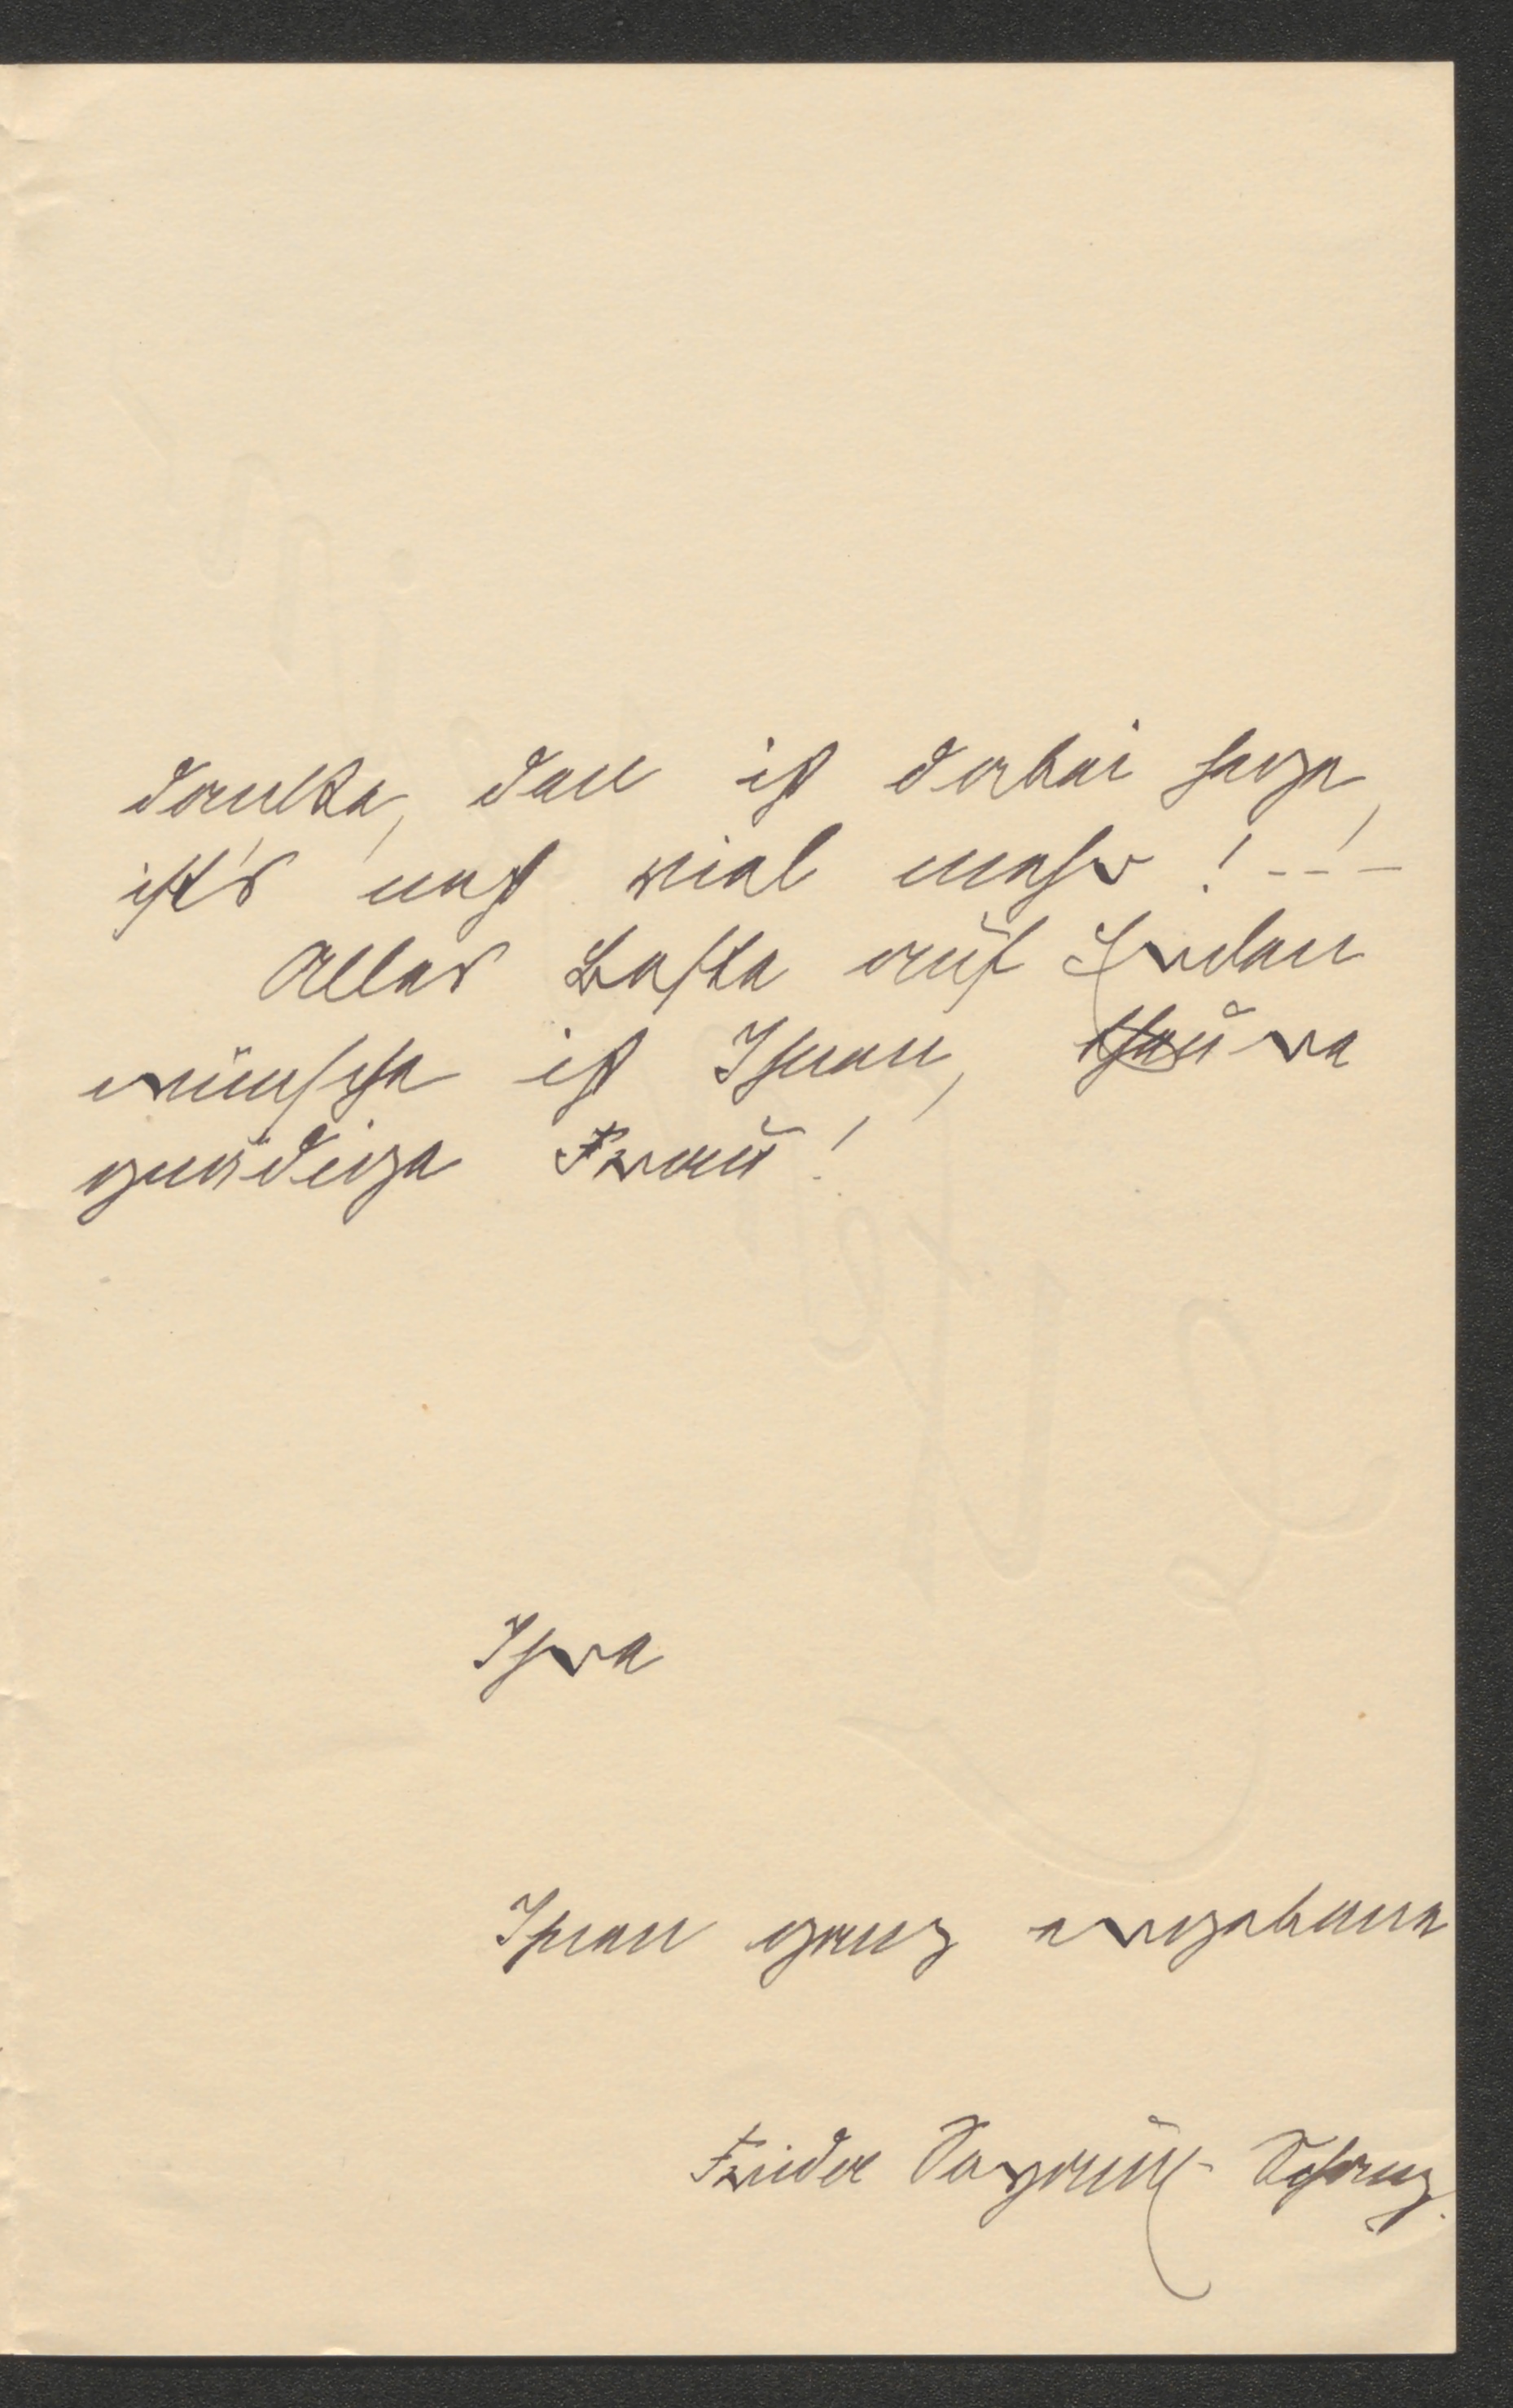 danke, den ich dabei hege,
ist's noch viel mehr! - - -
Alles Beste auf Erden
wünsche ich Ihnen, theure
gnädige Frau!
Ihre
Ihnen ganz ergebene
Frida Soyaux-Schanz.